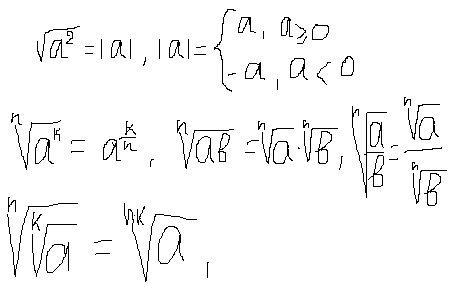 √a² = |a|, |a| = { a, a ≥ 0
-a, a < 0
ⁿ√aᵏ = a^(k/n), ⁿ√ab = ⁿ√a · ⁿ√b, ⁿ√(a/b) = ⁿ√a / ⁿ√b
ⁿ√(ᵏ√a) = ⁿᵏ√a,